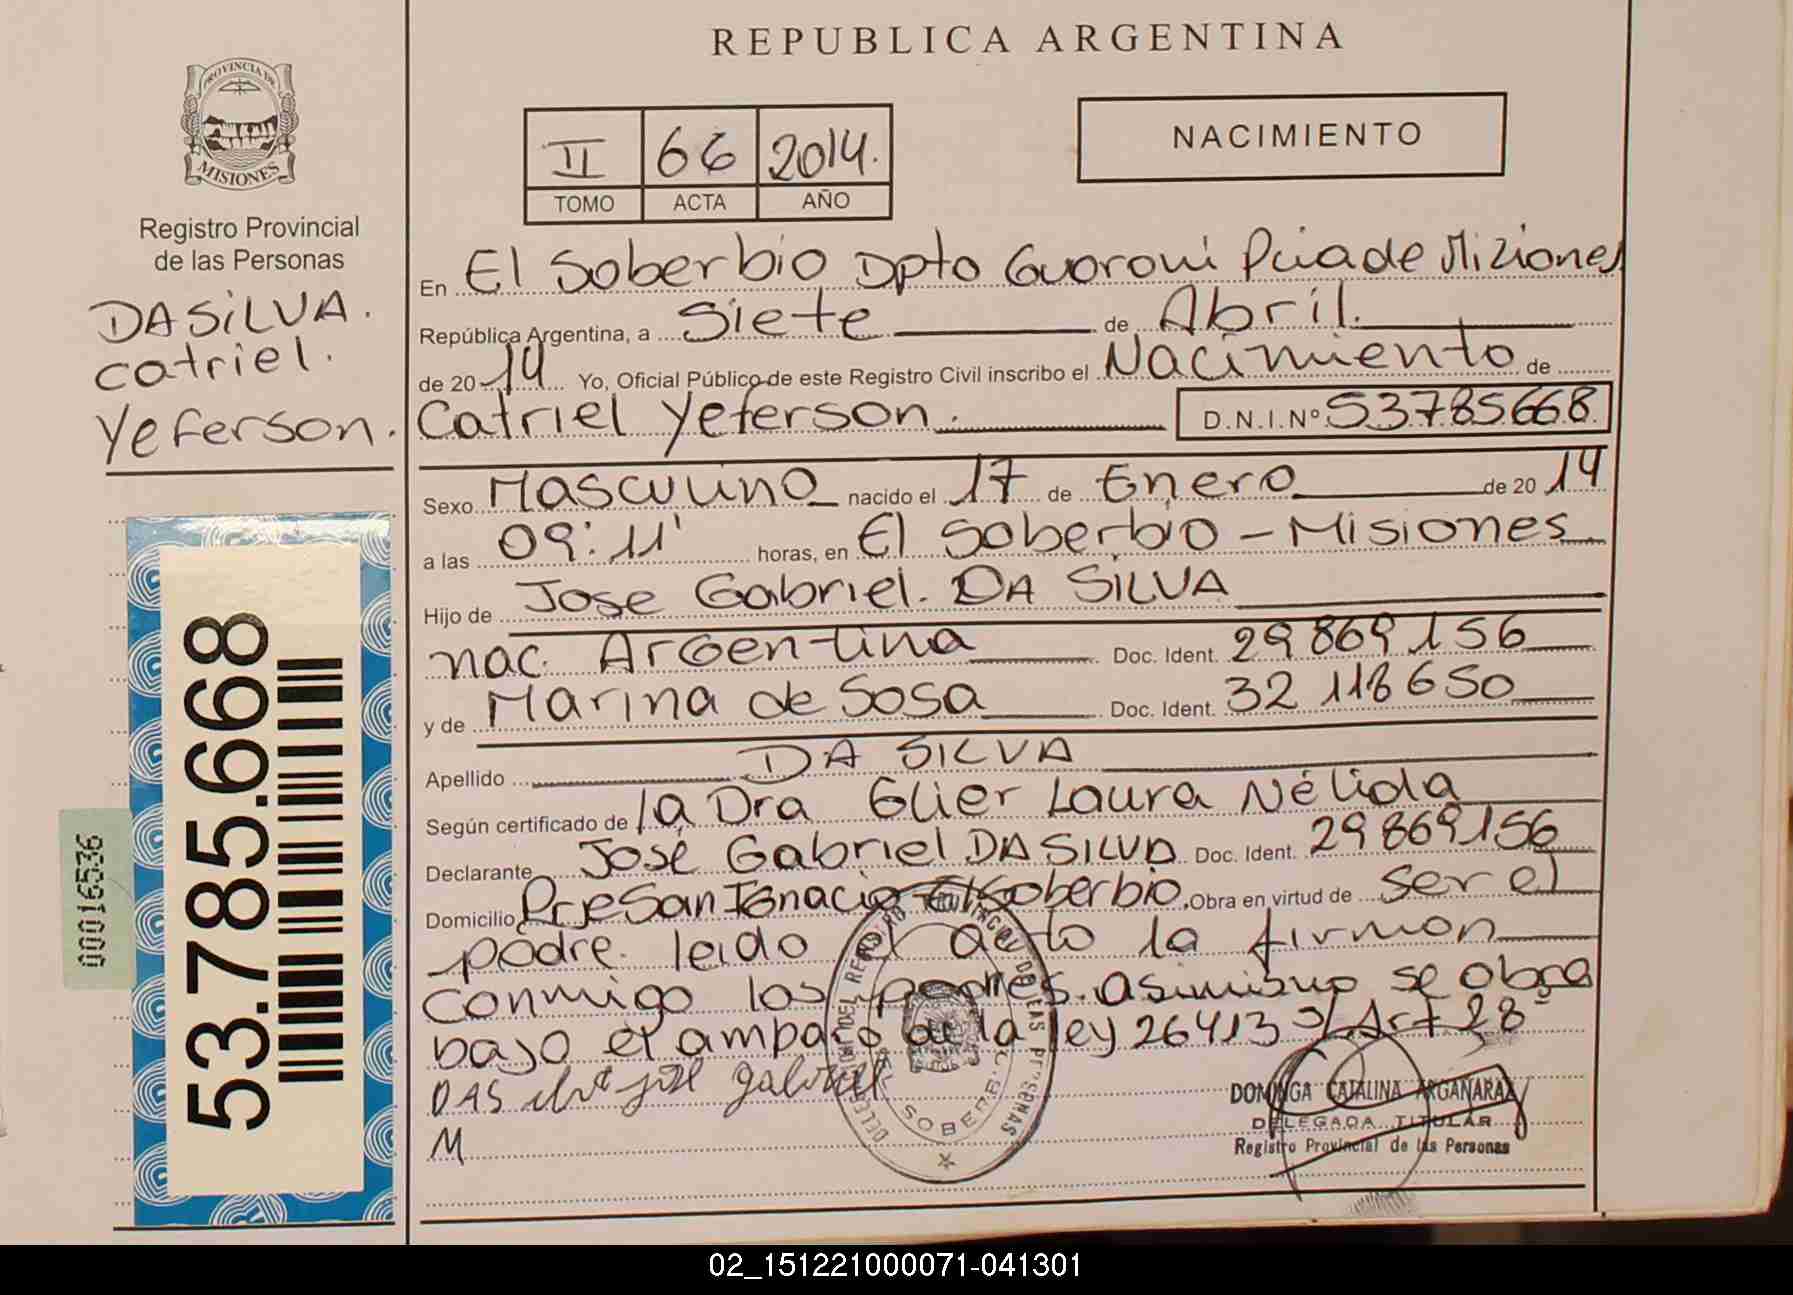 REPUBLICA ARGENTINA
PROVINCIA DE
MISIONES
Registro Provincial
de las Personas
DA SILVA.
Catriel.
Yeferson.
II 66 2014.
TOMO ACTA AÑO
NACIMIENTO
En El Soberbio Dpto Guarani Pcia de Misiones
República Argentina, a Siete de Abril.
de 2014 Yo, Oficial Público de este Registro Civil inscribo el Nacimiento de
Catriel Yeferson. D.N.I.Nº 53785668.
Sexo Masculino nacido el 17 de Enero de 2014
a las 09:11' horas, en El Soberbio - Misiones
Hijo de Jose Gabriel. DA SILVA
nac. Argentina Doc. Ident. 29869156
y de Marina de Sosa Doc. Ident. 32118650
Apellido DA SILVA
Según certificado de la Dra Glier Laura Nélida
Declarante José Gabriel DA SILVA Doc. Ident. 29869156
Domicilio Prje San Ignacio El Soberbio, Obra en virtud de ser el
padre. leido el acto la firman
conmigo los padres. asimismo se obra
bajo el amparo de la ley 26413 s/Art 28º
DAS jose gabriel
M
EL SOBERBIO
DOMINGA CATALINA ARGAÑARAZ
DELEGADA TITULAR
Registro Provincial de las Personas
53.785.668
00016536
02_151221000071-041301